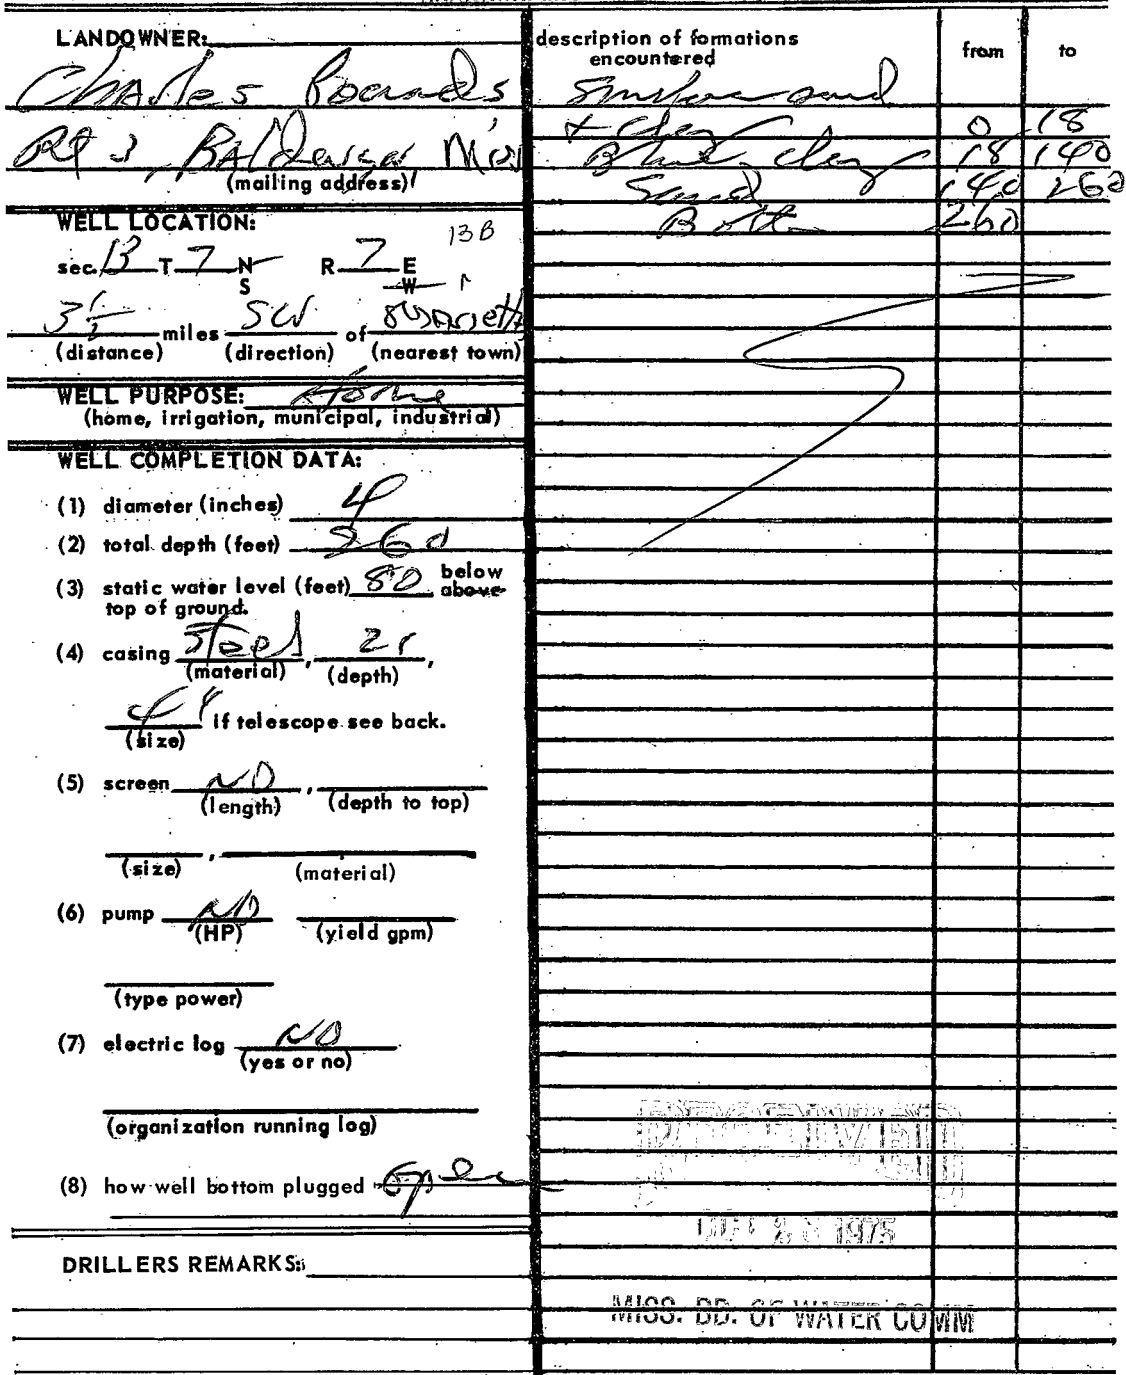 LANDOWNER:
Charles Pounds
Rt 3, BAldwyn Miss
(mailing address)
WELL LOCATION:
13B
sec. 13 T. 7 N R. 7 E
S W
3 1/2 miles SW of Marietta
(distance) (direction) (nearest town)
WELL PURPOSE: Home
(home, irrigation, municipal, industrial)
WELL COMPLETION DATA:
(1) diameter (inches) 4
(2) total depth (feet) 260
(3) static water level (feet) 80 below
above
top of ground.
(4) casing Steel,
(material) (depth)
4" if telescope see back.
(size)
(5) screen NO ,
(length) (depth to top)
,
(size) (material)
(6) pump NO
(HP) (yield gpm)
(type power)
(7) electric log NO
(yes or no)
(organization running log)
(8) how well bottom plugged Open
DRILLERS REMARKS:
description of formations from to
encountered
sand
+ clay 0 18
Blue clay 18 140
Sand 140 260
Bottom 260
RECEIVED
1975
MISS. BD. OF WATER COMM